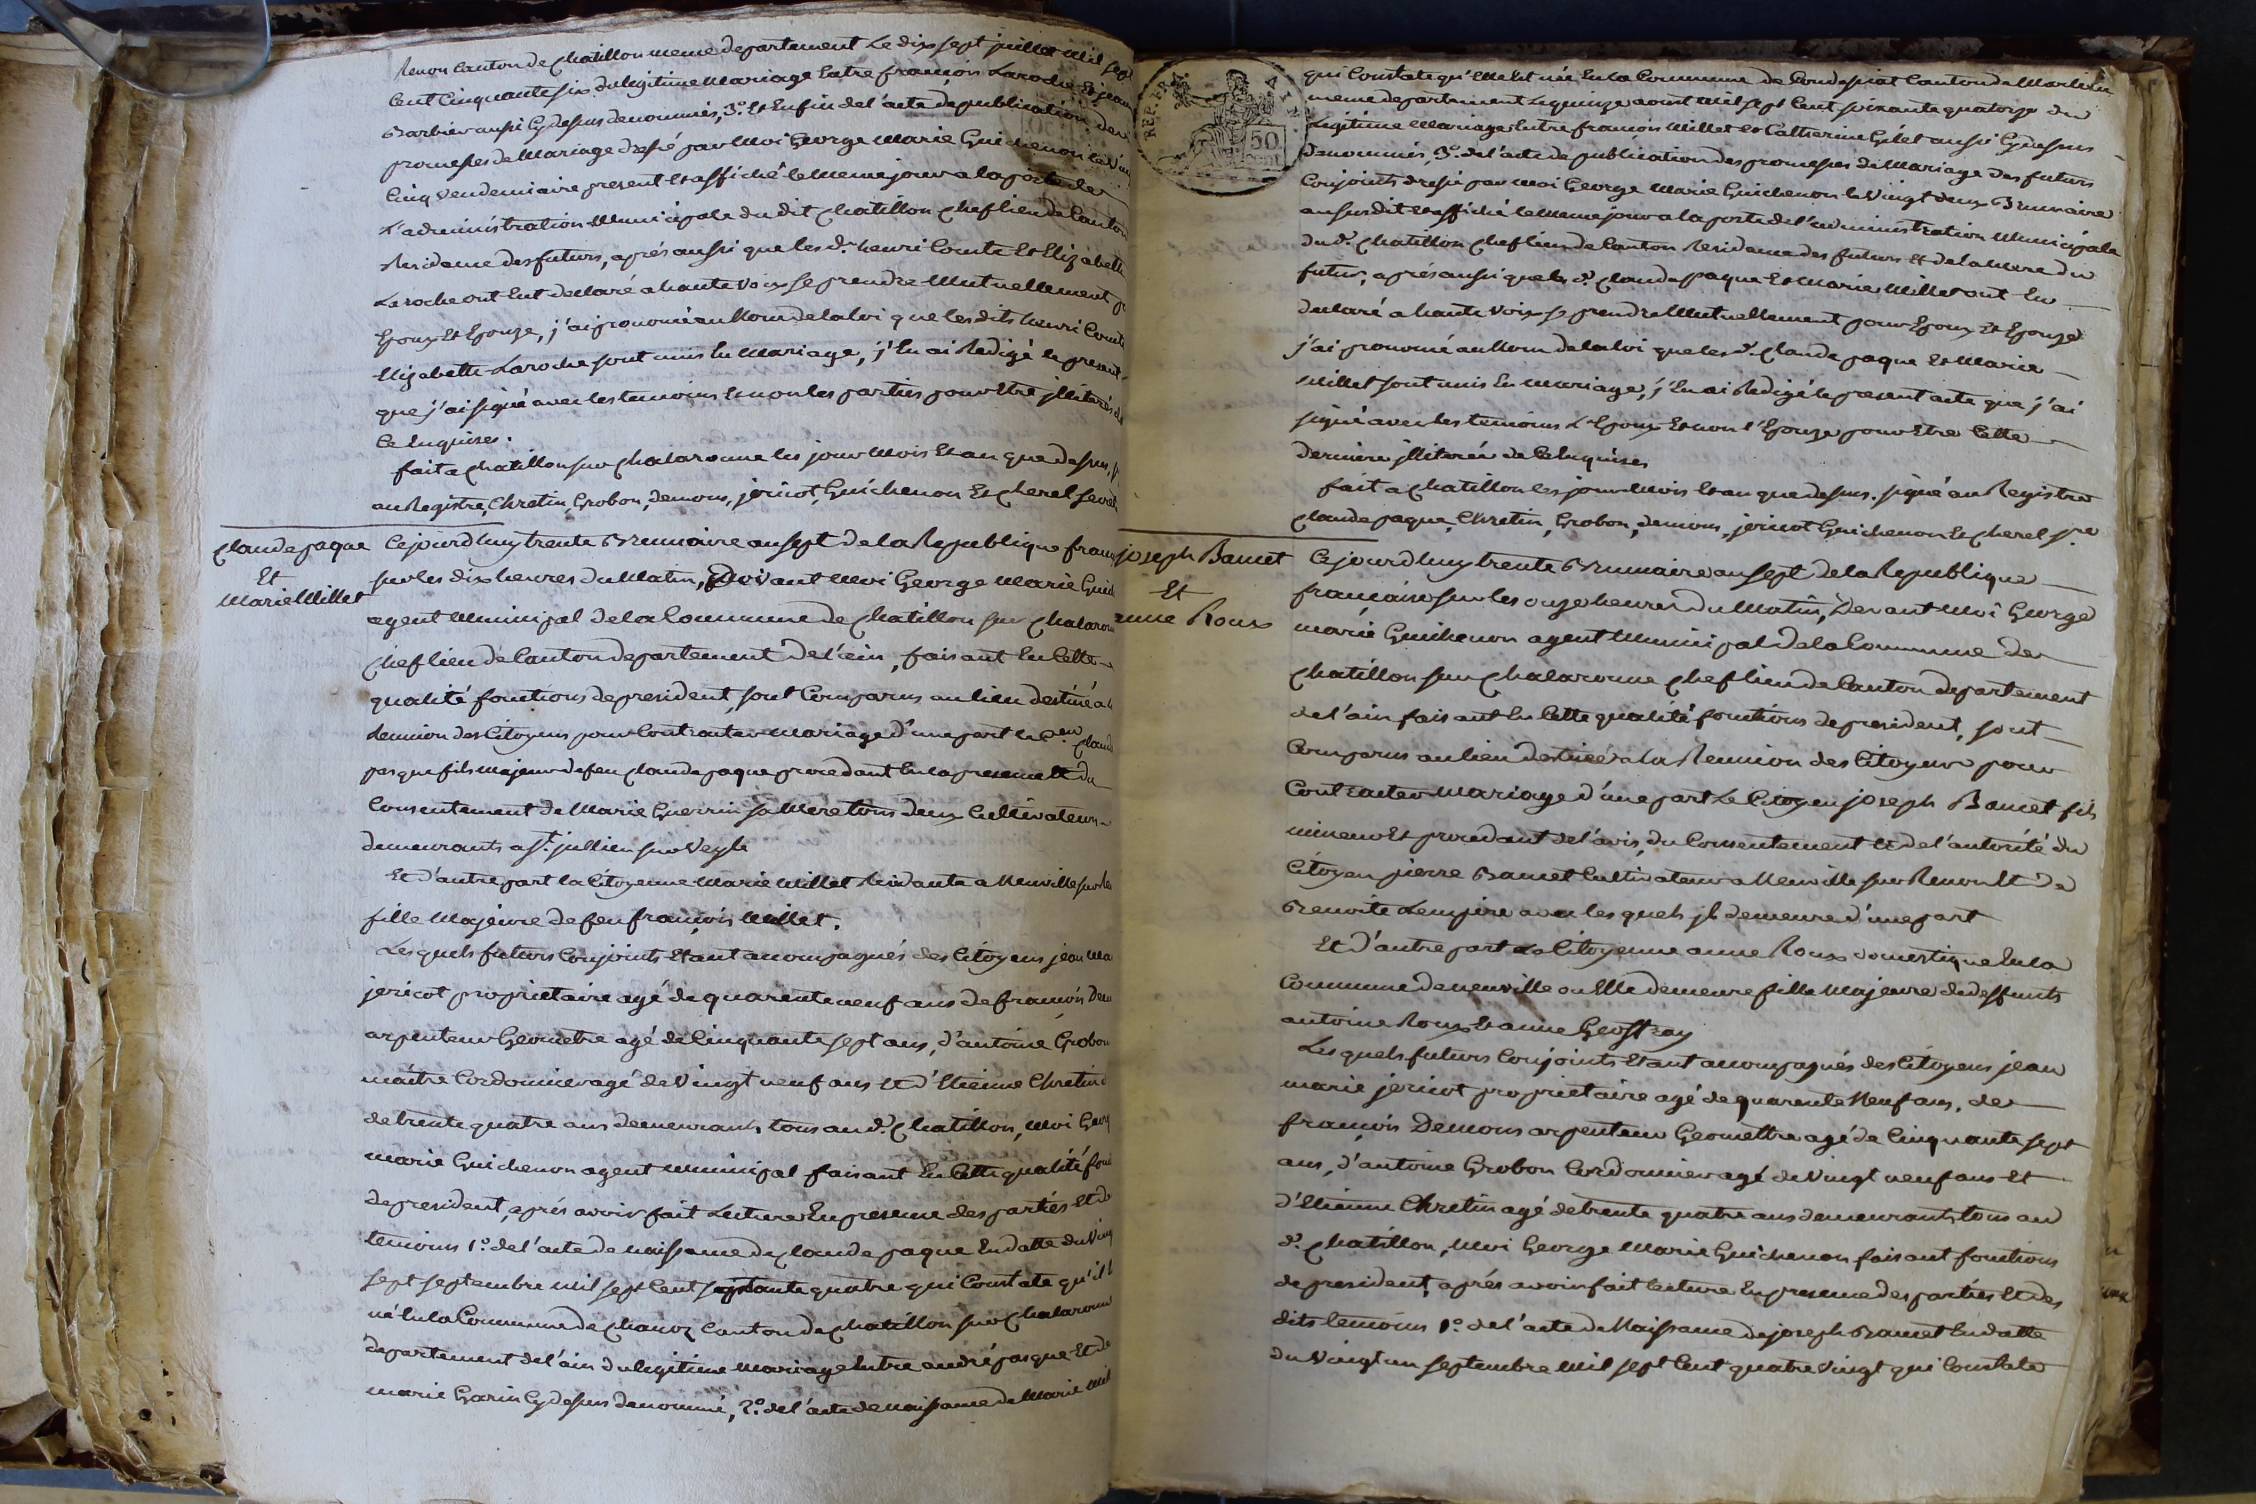 Renon Canton de chatillon meme departement Le dix sept juillet mil sept
Cent Cinquante six du legitime Mariage Entre françois Laroche Et jeanne
Barbier aussi Cy dessus denommés, 3.° Et Enfin de l'acte de publication des
promesses de Mariage dressé par Moi George Marie Guichenon le Vin
Cinq Vendemiaire present Et affiché le meme jour a la porte de
L'administration Municipale du dit chatillon chef lieu de Canton
Residence des futurs, aprés aussi que les d.ts henri Comte Et Elizabeth
Laroche ont Eut declaré a haute Voix se prendre Mutuellement p
Epoux Et Epouze, j'ai prononcé au Nom de la loi que les dits henri Comte
Elizabeth Laroche sont unis En Mariage, j'En ai Redigé le present
que j'ai signé avec les temoins Et non les parties pour Etre jllitarés d
Ce Enquises.
fait a chatillon sur chalaronne les jour Mois Et an que dessus, s
au Registre, Chretin, Grobon, demons, jericot, Guichenon Et cherel secret
Claude paque
Et
Marie Millet
Cejourd'huy trente Brumaire an sept de la Republique fran
sur les dix heures du Matin, devant Moi George Marie Guich
agent Municipal de la Commune de chatillon sur chalaron
chef lieu de Canton departement de l'ain, faisant En Cette
qualité fonctions de president, sont Comparus au lieu destiné a l
Reunion des Citoyens pour Contracter Mariage d'une part le C.en Claud
pasque fils Majeur de feu Claude paque procedant En la presence Et du
Consentement de Marie Guerrin sa Mere tous deux Cultivateurs
demeurants a s.t jullien sur Veyle
Et d'autre part la Citoyenne Marie Millet Residante a Neuville sur Re
fille Majeure de feu françois Millet.
Lesquels futurs Conjoints Etant accompagnés des Citoyens jean Ma
jericot proprietaire agé de quarente neuf ans de françois Dem
arpenteur Geometre agé de Cinquante sept ans, d'antoine Grobon
maître Cordonnier agé de Vingt neuf ans Et d'Etienne Chretin
de trente quatre ans demeurants tous au d.t chatillon, Moi Georg
Marie Guichenon agent Municipal faisant En Cette qualité fon
de president, aprés avoir fait Lecture En presence des parties Et de
temoins 1.° de l'acte de Naissance de Claude paque En datte du Ving
sept septembre mil sept Cent soixante quatre qui Constate qu'il E
né En la Commune de chanoz Canton de chatillon sur chalaronn
departement de l'ain du legitime Mariage Entre andré pasque Et de
Marie Garin Cy dessus denommé, 2.° de l'acte de Naissance de Marie Mil
REP. FRA.
AIN
50
qui Constate qu'elle Est née En la Commune de Condessiat Canton de Marlieu
meme departement Le quinze aoust mil sept Cent soixante quatorze du
Legitime Mariage Entre françois Millet Et Catherine Gilet aussi Cy dessus
denommés, 3.° de l'acte de publication des promesses de Mariage des futurs
Conjoints dressé par Moi George Marie Guichenon le Vingt deux Brumaire
an susdit Et affiché le Meme jour a la porte de l'administration Municipale
du d.t chatillon chef lieu de Canton Residence des futurs Et de la Mere du
futur, aprés aussi que les d.t Claude paque Et Marie Millet ont Eu
declaré a haute Voix se prendre Mutuellement pour Epoux Et Epouze
j'ai prononcé au Nom de la loi que les d.t Claude paque Et Marie
Millet sont unis En Mariage, j'En ai Redigé le present acte que j'ai
signé avec les temoins L'Epoux Et non l'Epouze pour Etre Cette
derniere jlliterée de Ce Enquises
fait a chatillon les jour Mois Et an que dessus. signé au Registre
Claude paque, Chretin, Grobon, demons, jericot Guichenon Et cherel s.re
joseph Bancet
Et
anne Roux
Cejourd'huy trente Brumaire an sept de la Republique
française sur les onze heures du Matin, Devant Moi George
Marie Guichenon agent Municipal de la Commune de
chatillon sur chalaronne chef lieu de Canton departement
de l'ain faisant En Cette qualité fonctions de president, sont
Comparus au lieu destiné a la Reunion des Citoyens pour
Contracter Mariage d'une part Le Citoyen joseph Bancet fils
mineur Et procedant de l'avis, du Consentement Et de l'autorité du
Citoyen pierre Bancet Cultivateur a Neuville sur Renon Et de
Benoite Lempire avec les quels jl demeure d'une part
Et d'autre part La Citoyenne anne Roux domestique En la
Commune de neuville ou Elle demeure fille Majeure de deffunts
antoine Roux Et anne Geoffray
Lesquels futurs Conjoints Etant accompagnés des Citoyens jean
marie jericot proprietaire agé de quarente Neuf ans, de
françois Demons arpenteur Geomettre agé de Cinquante sept
ans, d'antoine Grobon Cordonnier agé de Vingt neuf ans Et
d'Etienne Chretin agé de trente quatre ans demeurants tous au
d.t chatillon, Moi George Marie Guichenon faisant fonctions
de president, aprés avoir fait lecture En presence des parties Et des
dits temoins 1.° de l'acte de Naissance de joseph Bancet En datte
du Vingt un septembre Mil sept Cent quatre Vingt qui Constate